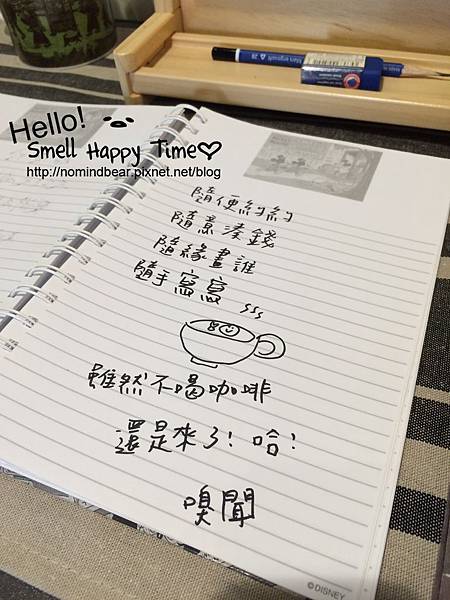 Hello!
Smell Happy Time♡
http://nomindbear.pixnet.net/blog
隨便約約
隨意湊錢
隨緣畫誰
隨手寫寫
雖然不喝咖啡
還是來了!哈!
嗅聞
©DISNEY